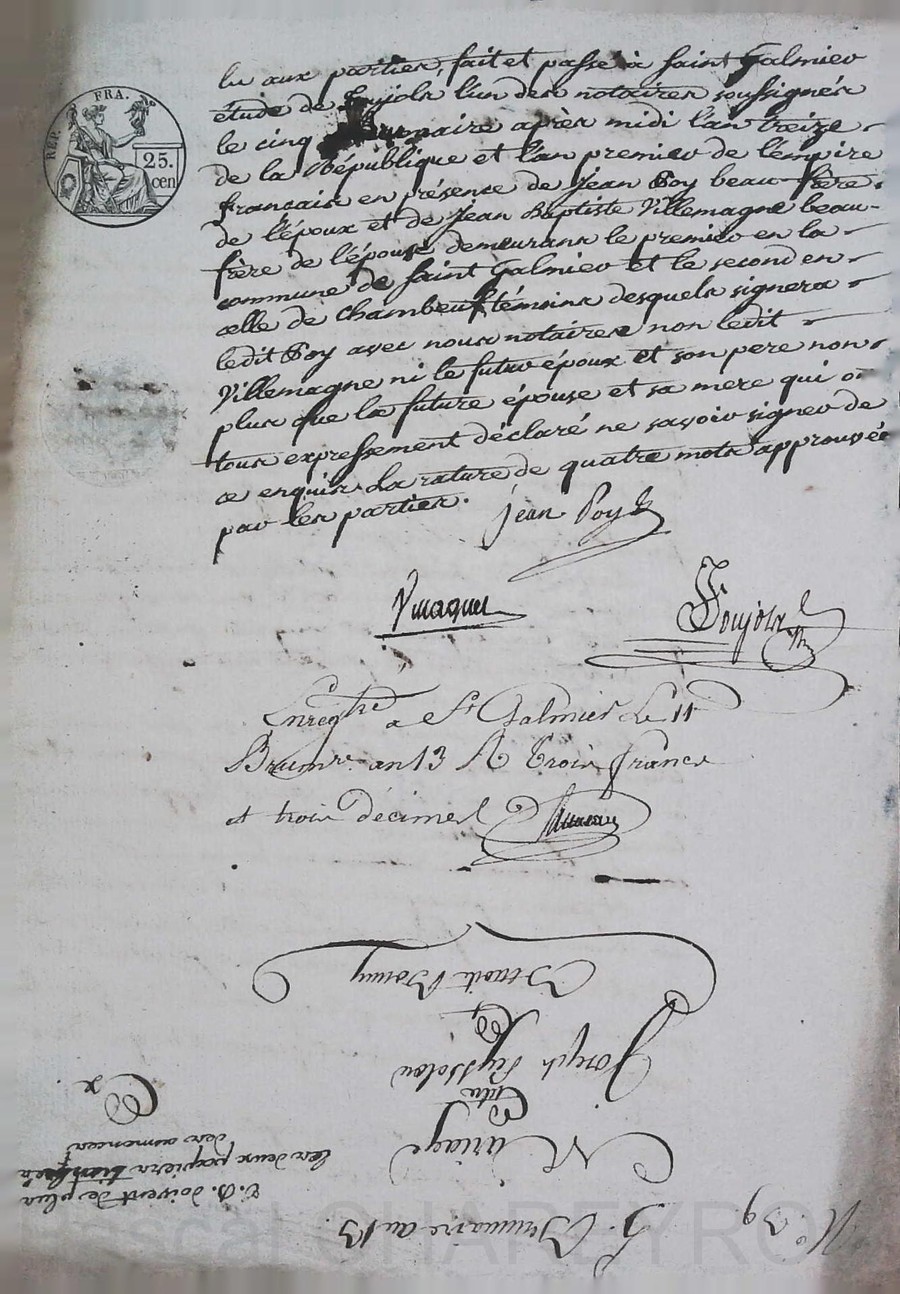 REP. FRA.
25.
cen
lu aux parties, fait et passé à saint Galmier
étude de Soujols l'un des notaires soussignés
le cinq brumaire après midi l'an treize
de la République et l'an premier de l'empire
francais en présence de jean Poy beau frère
de l'époux et de jean Baptiste Villemagne beau-
frère de l'épouse demeurans le premier en la
commune de saint Galmier et le second en
celle de chambeuf témoins desquels signera
ledit Poy avec nous notaires non ledit
Villemagne ni le futur époux et son pere non
plus que la future épouse et sa mere qui o
tous expressement déclaré ne savoir signer de
ce enquis La rature de quatre mots approuvée
par les parties.
jean Poy
Soujols
Enregtré a St Galmier Le 11
Brumre an 13 R Trois francs
et trois décimes
No 39
5. Brumaire an 13.
Mariage
Entre
Joseph Peysselon
Et
Benoite Bonny
C.B. doivent de plus
les deux papiers timbrés
des annonces